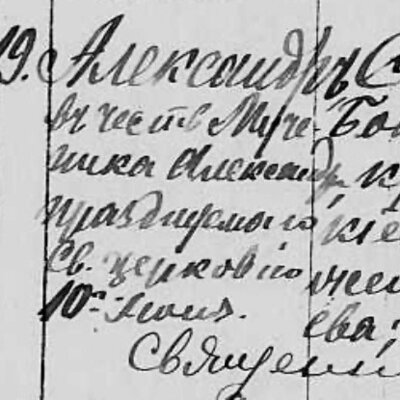 19. Александръ С
въ честь Муче- Бо
ника Александра, к
празднуемаго кіе
св. церковію
10го Іюня. ева,
Священ